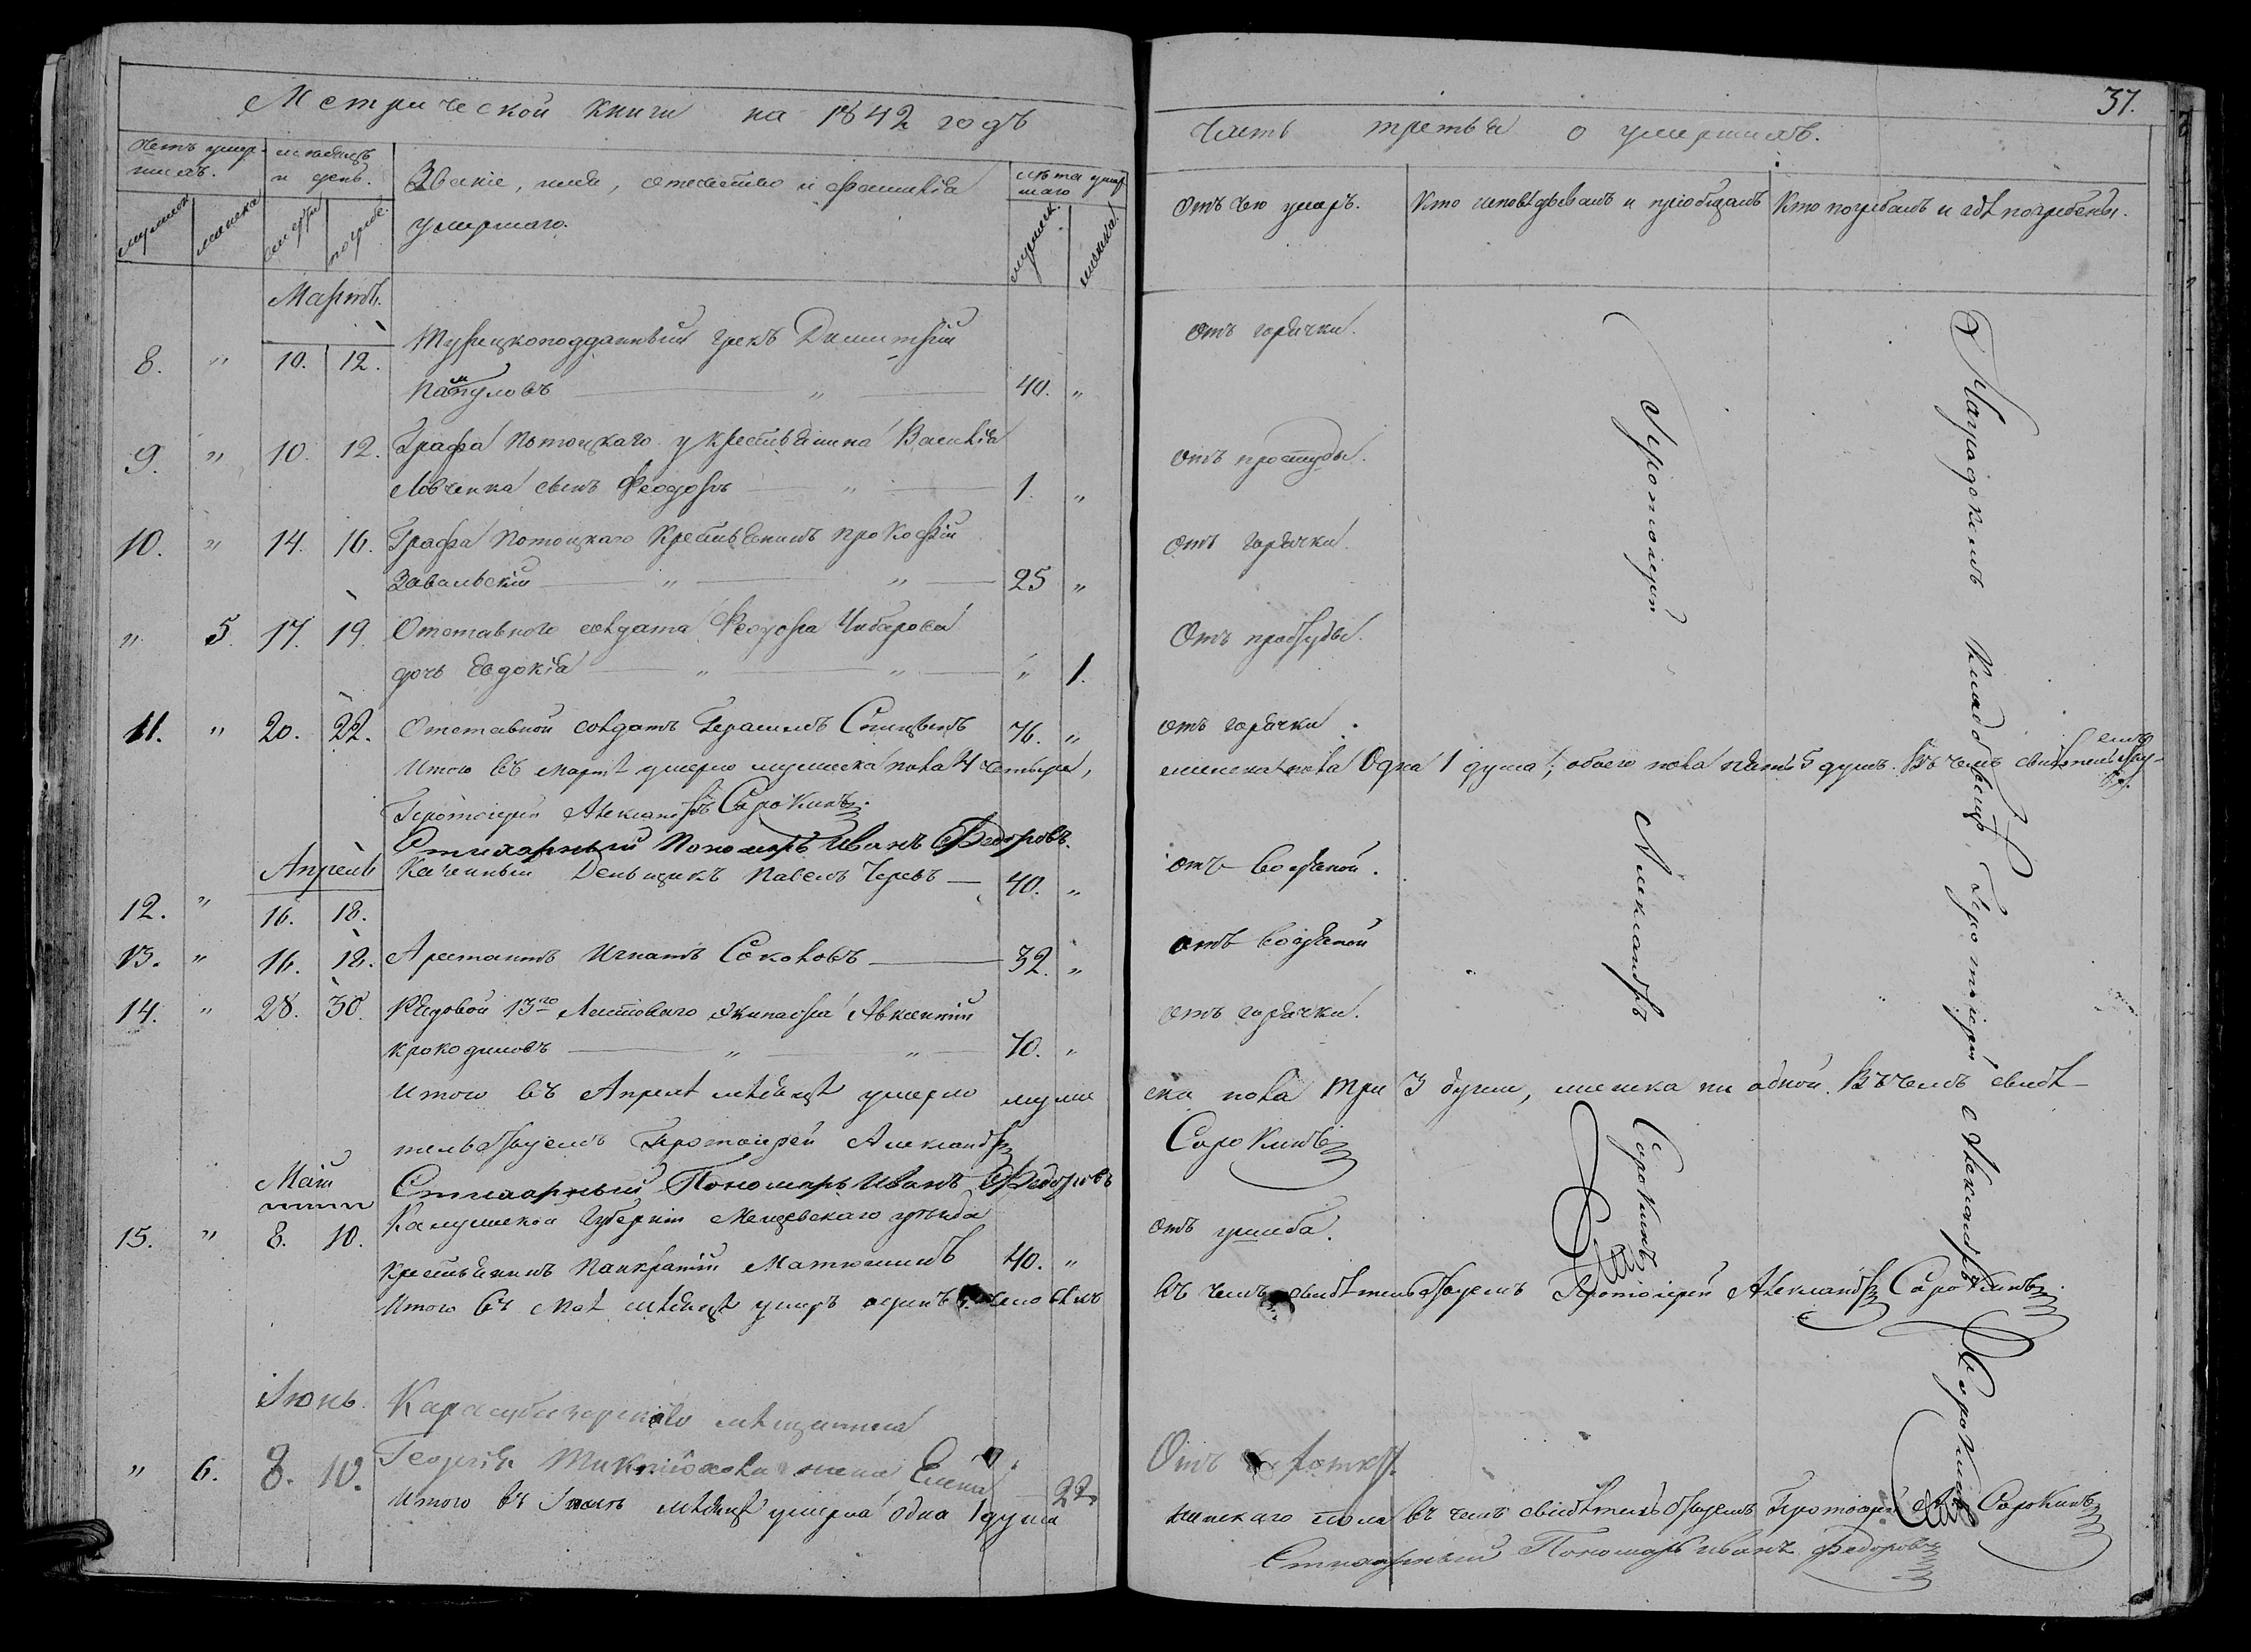 Метрической книги на 1842 годъ
Счетъ умер-
шихъ.
мѣсяцъ
и день.
Званіе, имя, отечество и фамилія
умершаго.
лѣта умер
шаго
мужеск
женска
смерти
погреб.
мужеск.
женска.
Мартъ.
8. " 10. 12. Турецкоподданный грекъ Димитрій
40. "
9. " 10. 12. Графа Потоцкаго у крестьянина Василія
Лобченка сынъ Феодоръ " 1. "
10. " 14. 16. Графа Потоцкаго крестьянинъ Прокофій
Завальскій " " 25 "
" 5. 17. 19. Отставного солдата Феодора Чибарова
дочь Евдокія " " " 1.
11. " 20. 22. Отставной солдатъ Герасимъ Спицынъ 76. "
Итого въ мартѣ умерло мужеска пола 4 четыре,
Протоіерей Александръ Сорокинъ.
Стихарный Пономарь Иванъ Федоровъ.
Апрель
12. " 16. 18. Казенный Деньщикъ Павелъ 40. "
13. " 16. 18. Арестантъ Игнатъ Соколовъ 32. "
14. " 28. 30. Рядовой 13го Ластоваго Экипажа Авксентій
Крокодиловъ " " 70. "
Итого въ Апрелѣ мѣсяцѣ умерло муже
тельствуемъ Протоіерей Александръ
Стихарный Пономарь Иванъ Федоровъ
Маій
15. " 8. 10. Калужской Губерніи Мещовскаго уѣзда
крестьянинъ Панкратій Матюшинъ 40. "
Итого въ Маѣ мѣсяцѣ умеръ одинъ 1. человѣкъ
Іюнь. Карасубазарскаго мѣщанина
" 6. 8. 10. Георгія жена Елена 22.
Итого въ Іюнѣ мѣсяцѣ умерла одна 1 душа
37.
Часть третья о умершихъ.
Отъ чего умеръ.
Кто исповѣдывалъ и пріобщалъ
Кто погребалъ и гдѣ погребены.
Отъ горячки.
Отъ простуды.
Отъ горячки.
Отъ простуды.
отъ горячки.
женска пола Одна 1 душа, обоего пола пять 5 душъ. Въ чемъ свидѣтельству-
емъ
отъ водяной.
отъ водяной
отъ горячки.
ска пола три 3 души, женска ни одной. Въ чемъ свидѣ-
Сорокинъ
отъ ушиба.
въ чемъ свидѣтельствуемъ Протоіерей Александръ Сорокинъ.
Отъ
женскаго пола въ чемъ свидѣтельствуемъ Протоіерей А. Сорокинъ
Стихарный Пономарь Иванъ Федоровъ
Протоіерей Александръ Сорокинъ
На градскомъ кладбищѣ, Протоіерей Александръ Сорокинъ